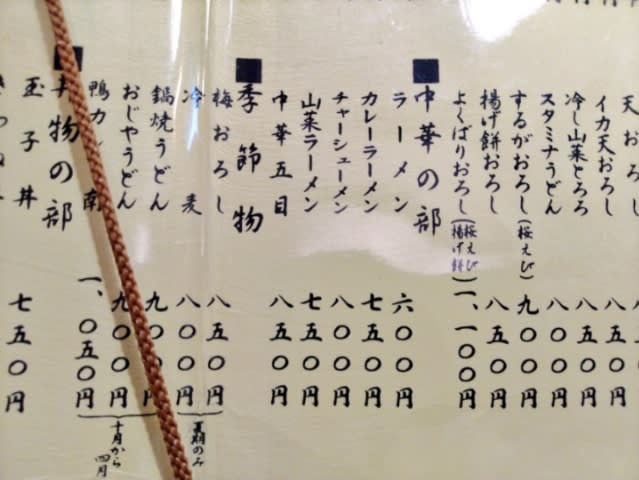 天おろし
イカ天おろし 八五〇円
冷し山菜とろろ 八〇〇円
スタミナうどん 八〇〇円
するがおろし(桜えび) 九〇〇円
揚げ餅おろし 八五〇円
よくばりおろし(桜えび揚げ餅) 一、一〇〇円
■中華の部
ラーメン 六〇〇円
カレーラーメン 七五〇円
チャーシューメン 八〇〇円
山菜ラーメン 七五〇円
中華五目 八五〇円
■季節物
梅おろし 八五〇円
冷麦 八〇〇円
夏期のみ
鍋焼うどん 九〇〇円
おじやうどん 九〇〇円
鴨カ 南 一、〇五〇円
十月から
四月
■丼物の部
玉子丼 七五〇円